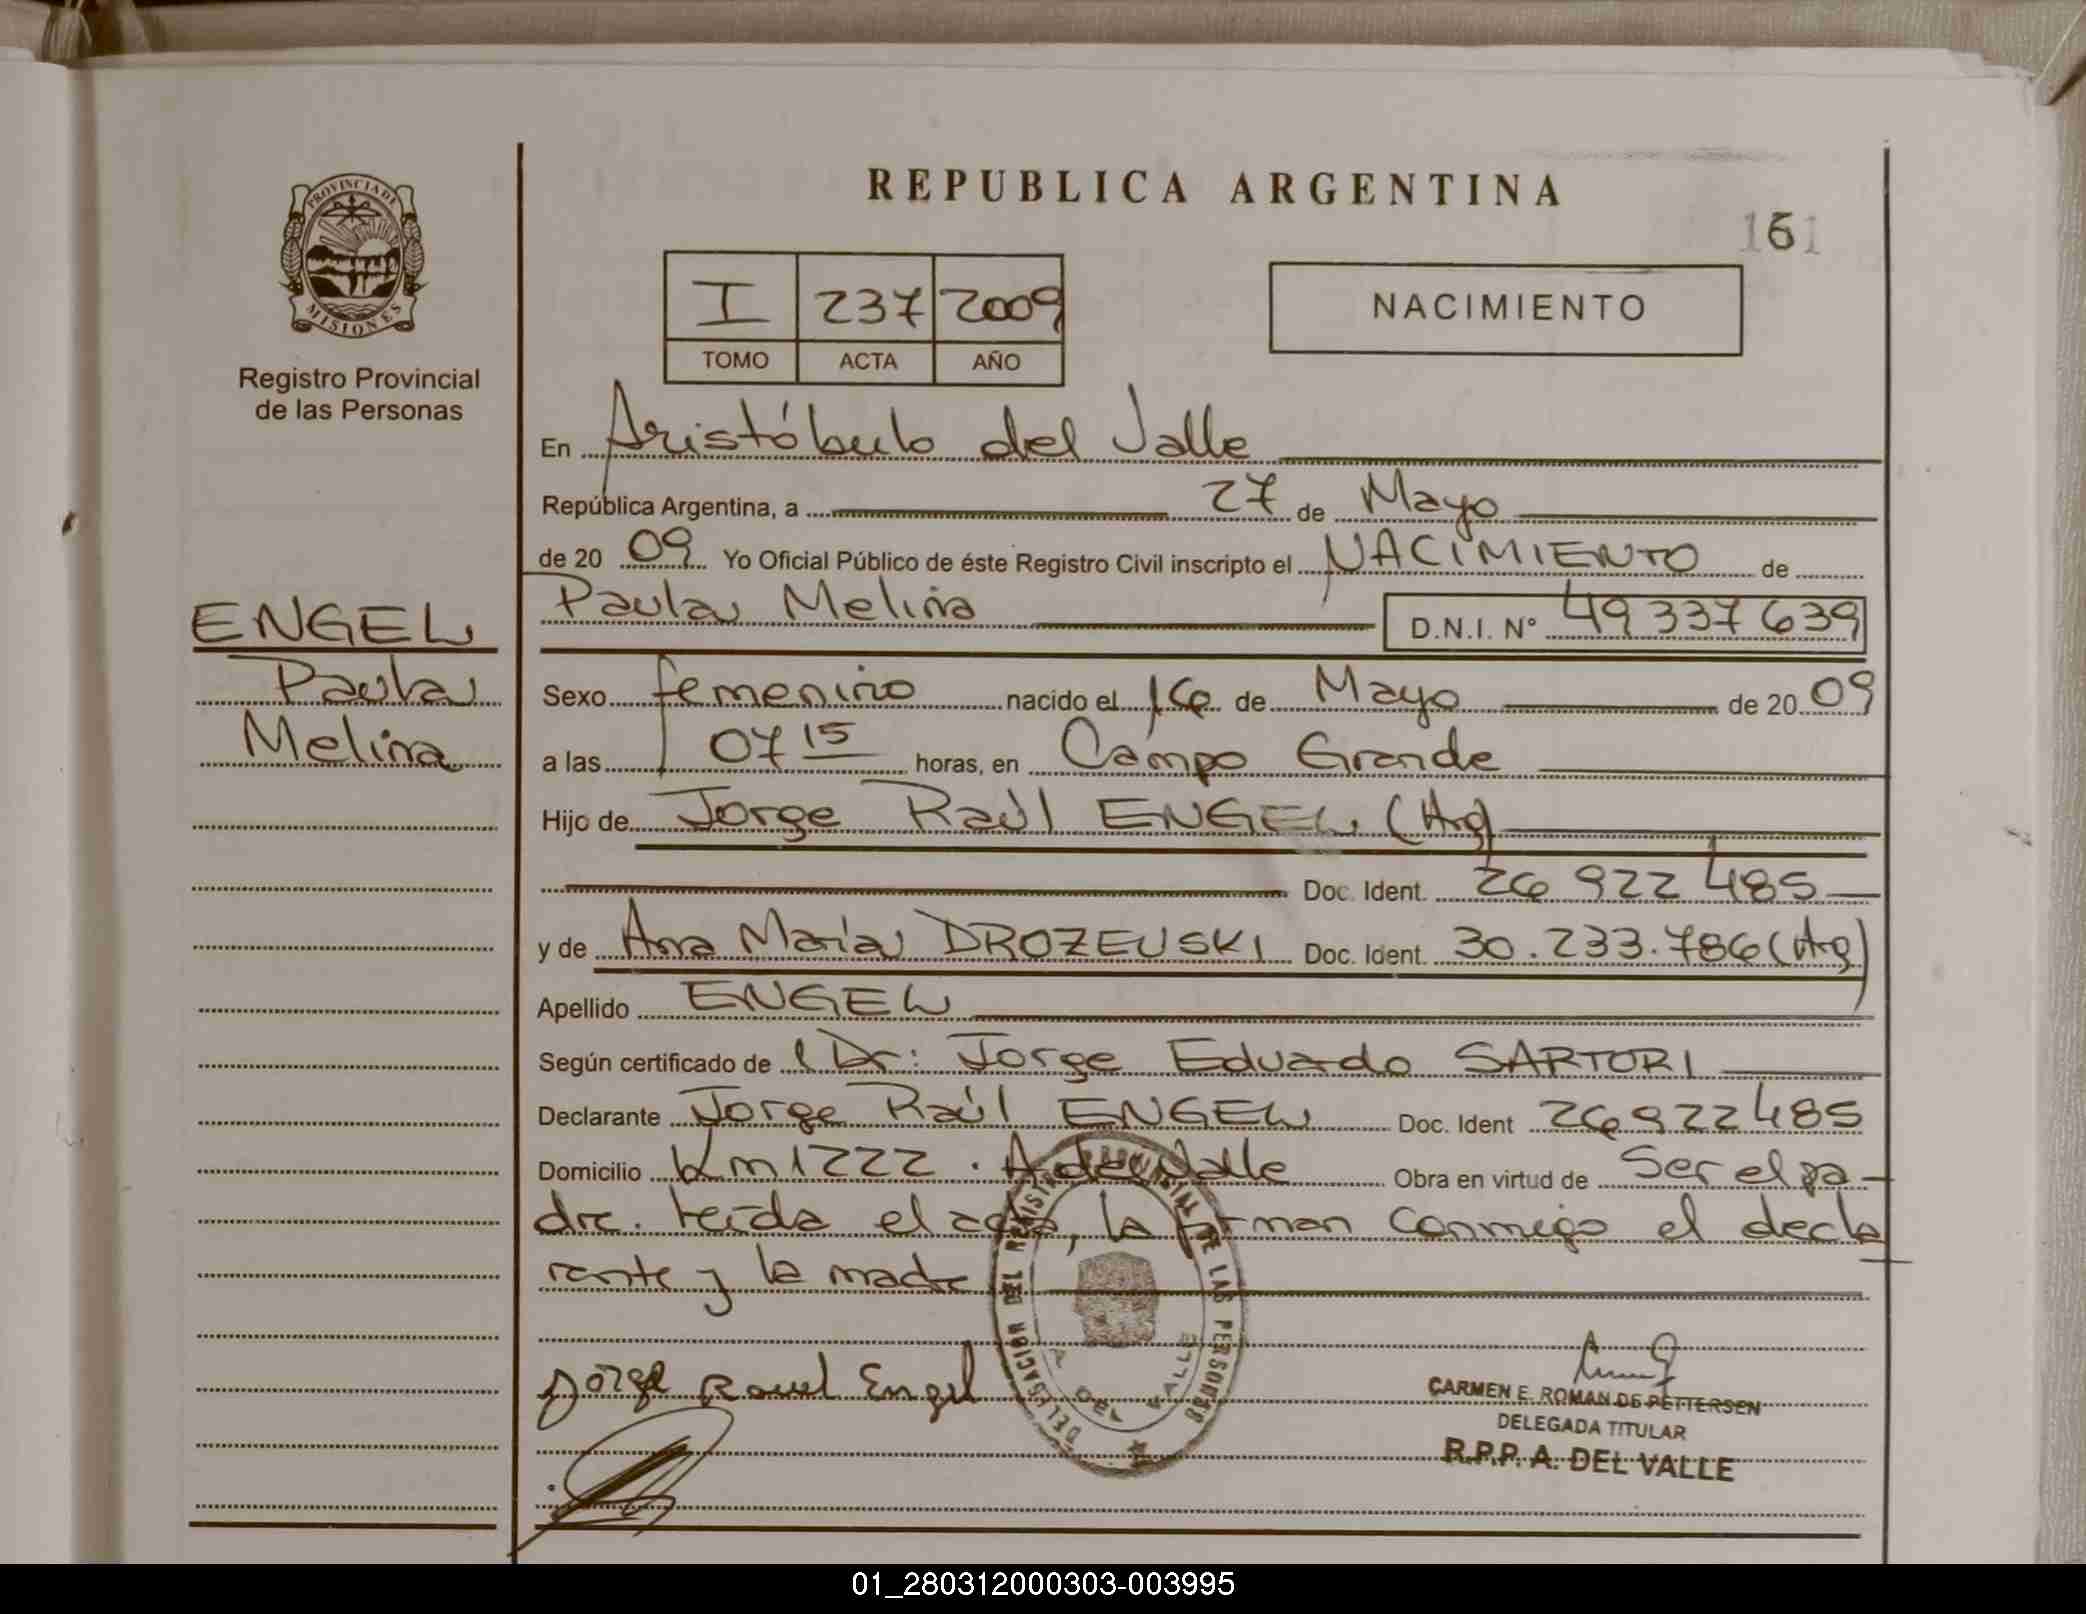 REPUBLICA ARGENTINA
161
PROVINCIA DE
MISIONES
Registro Provincial
de las Personas
I 237 2009
TOMO ACTA AÑO
NACIMIENTO
En Aristóbulo del Valle
República Argentina, a 27 de Mayo
de 20 09 Yo Oficial Público de éste Registro Civil inscripto el NACIMIENTO de
Paula Melina D.N.I. Nº 49 337 639
ENGEL
Paula
Melina
Sexo femenino nacido el 16 de Mayo de 20 09
a las 07 15 horas, en Campo Grande
Hijo de Jorge Raúl ENGEL (Arg)
Doc. Ident. 26 922 485
y de Ana María DROZEUSKI Doc. Ident. 30.233.786 (Arg)
Apellido ENGEL
Según certificado de l Dr: Jorge Eduardo SARTORI
Declarante Jorge Raúl ENGEL Doc. Ident 26 922 485
Domicilio Km 1222. A. del Valle Obra en virtud de Ser el pa-
dre. Leída el acta, la firman conmigo el decla
rante y la madre
DELEGACION DEL REGISTRO PROVINCIAL DE LAS PERSONAS
A. DEL VALLE
Jorge Raul Engel
CARMEN E. ROMAN DE PETTERSEN
DELEGADA TITULAR
R.P.P. A. DEL VALLE
01_280312000303-003995